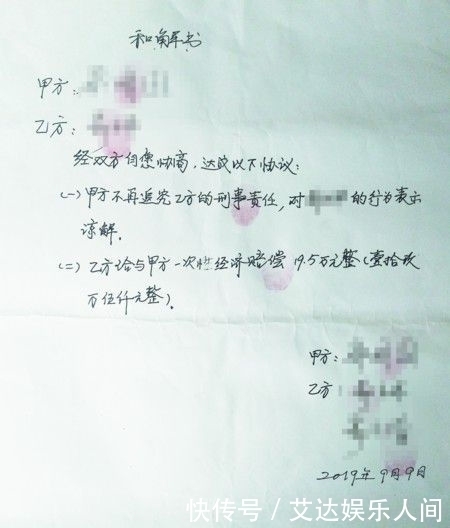 和解书
甲方:
乙方:
经双方自愿协商,达成以下协议:
(一)甲方不再追究乙方的刑事责任,对 的行为表示
谅解。
(二)乙方给与甲方一次性经济赔偿19.5万元整(壹拾玖
万伍仟元整)。
甲方:
乙方:
2019年9月9日
快传号/艾达娱乐人间